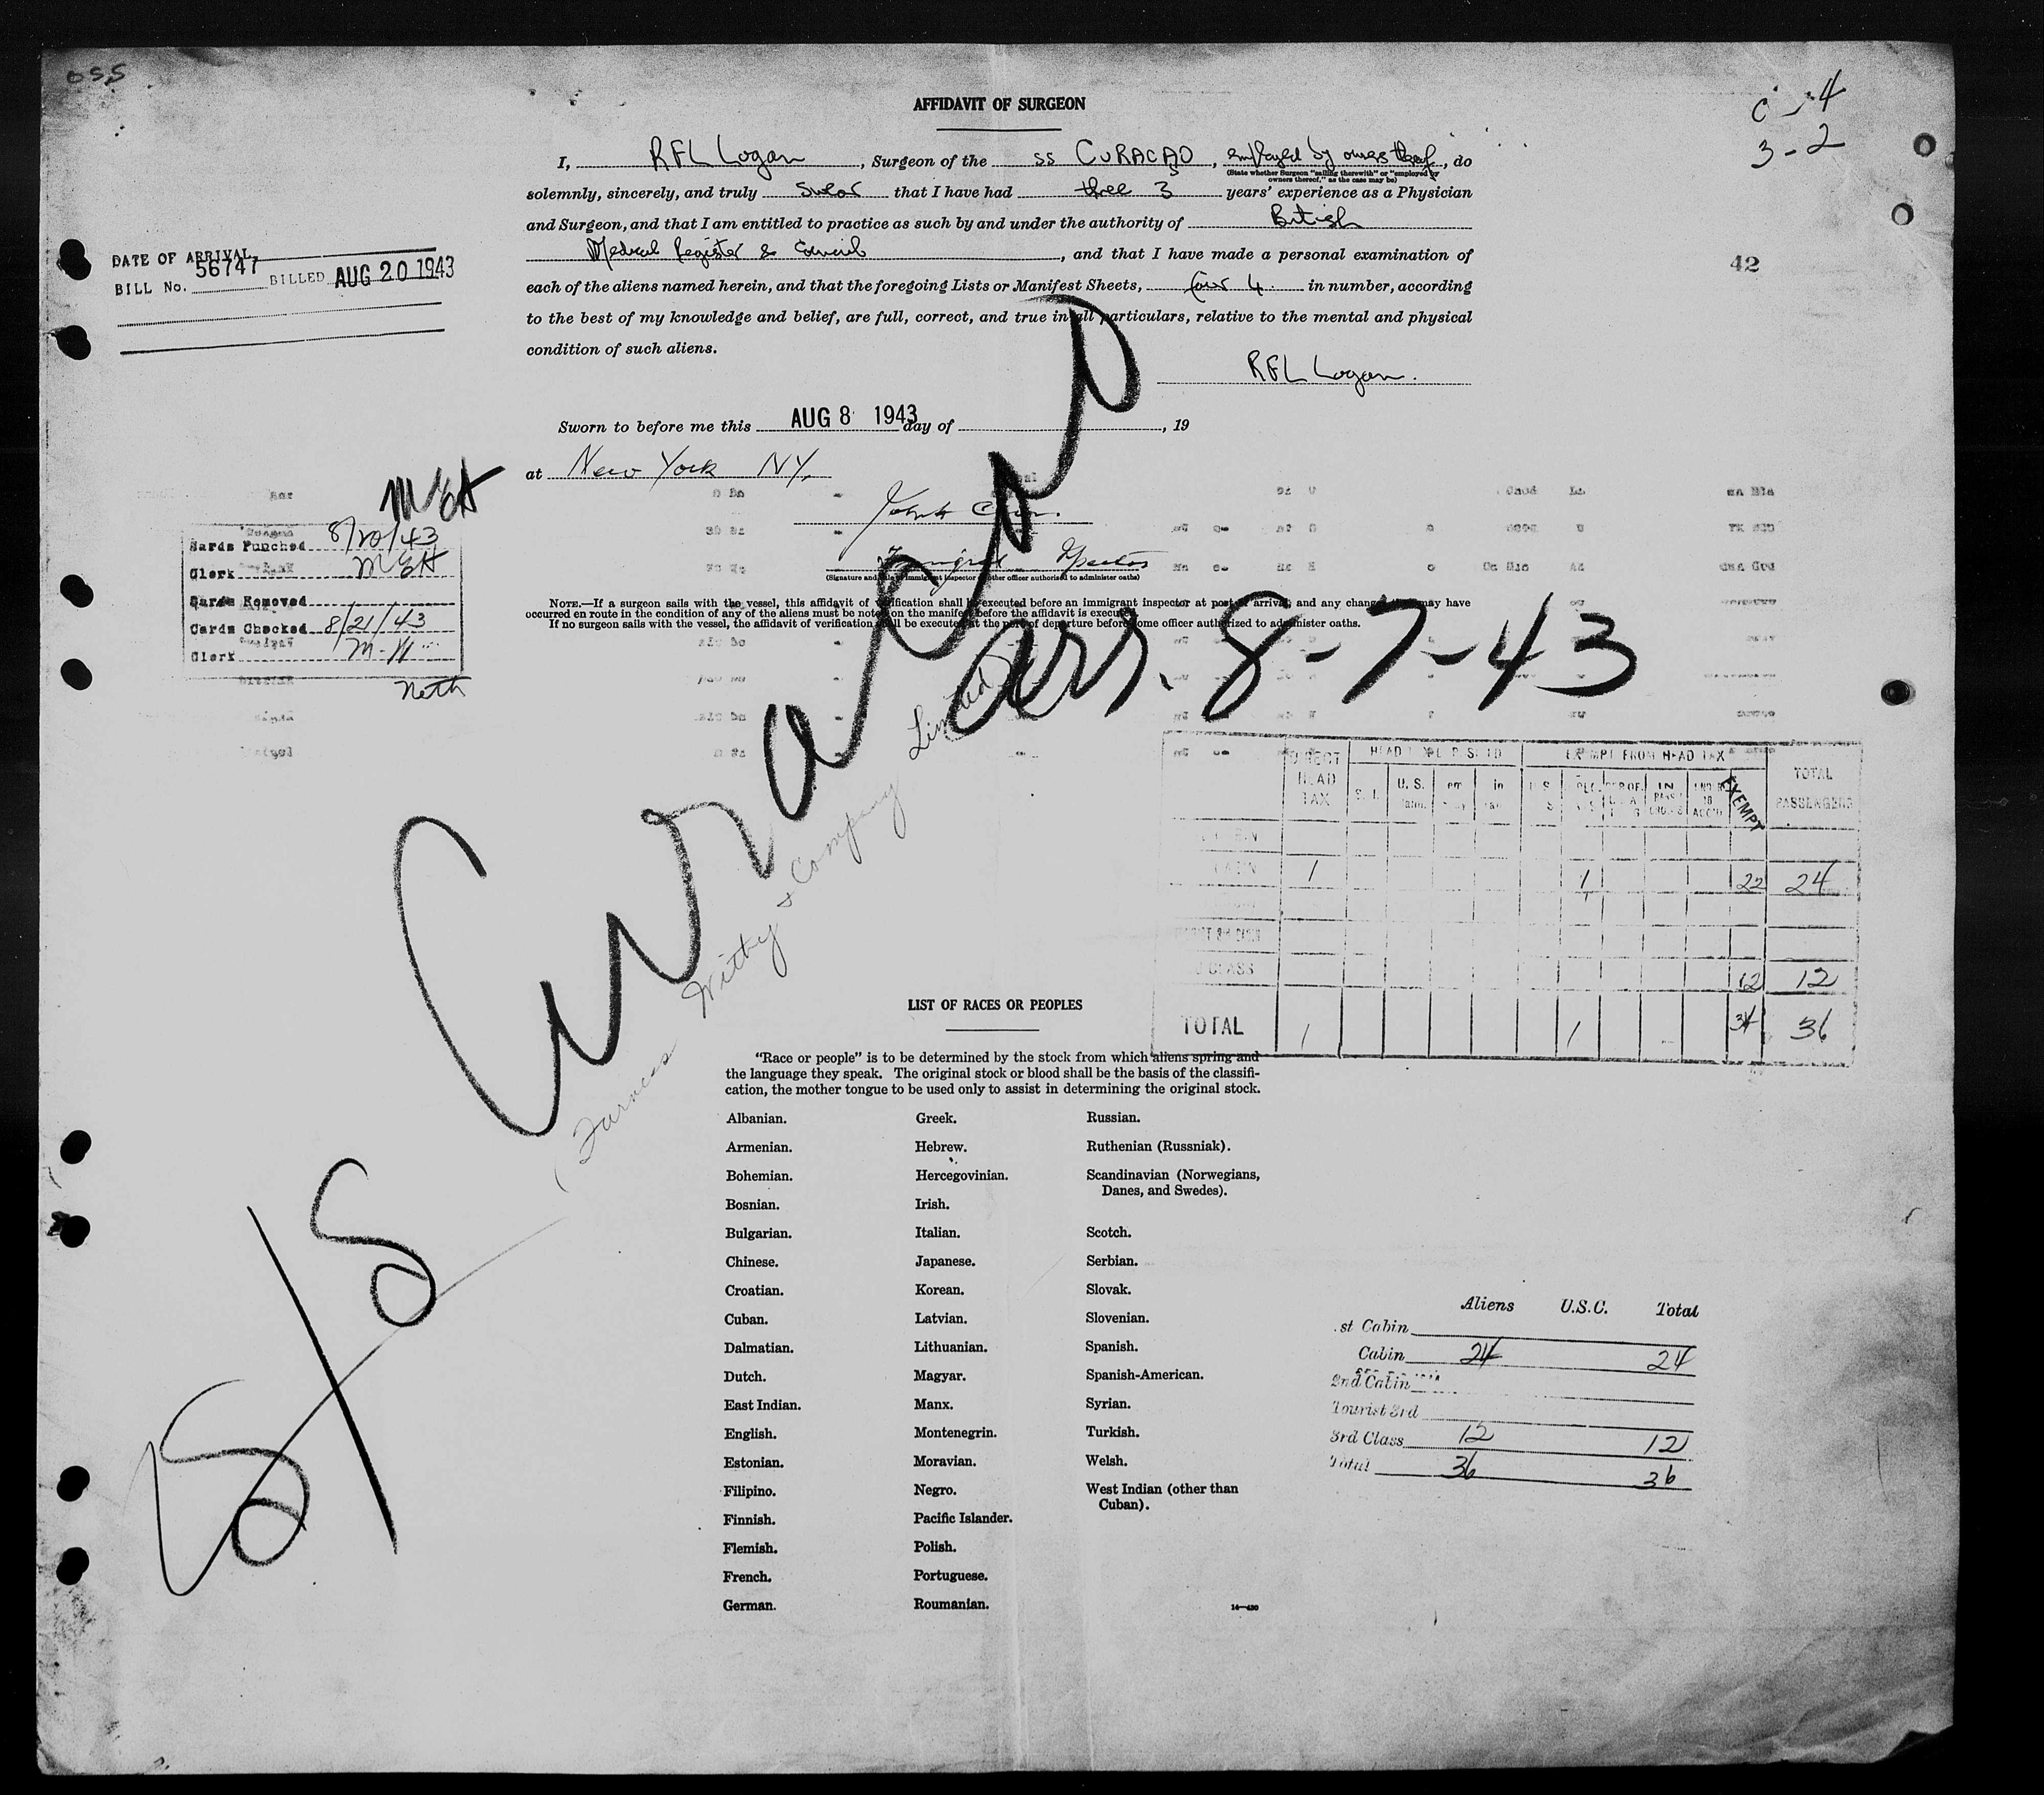 055
AFFIDAVIT OF SURGEON
C - 4
3 - 2
I, RFL Logan, Surgeon of the SS CURACAO, employed by owners thereof, do
(State whether Surgeon "sailing therewith" or "employed by
owners thereof," as the case may be)
solemnly, sincerely, and truly swear that I have had three 3 years' experience as a Physician
and Surgeon, and that I am entitled to practice as such by and under the authority of British
Medical Register & Council, and that I have made a personal examination of
each of the aliens named herein, and that the foregoing Lists or Manifest Sheets, four 4. in number, according
to the best of my knowledge and belief, are full, correct, and true in all particulars, relative to the mental and physical
condition of such aliens.
RFL Logan.
DATE OF ARRIVAL
BILL No. 56747 BILLED AUG 20 1943
42
Sworn to before me this AUG 8 1943 day of , 19
at New York NY.
John
Immigrant Inspector
(Signature and title of immigrant inspector or other officer authorized to administer oaths)
NOTE.—If a surgeon sails with the vessel, this affidavit of verification shall be executed before an immigrant inspector at port of arrival, and any changes may have
occurred en route in the condition of any of the aliens must be noted on the manifest before the affidavit is executed.
If no surgeon sails with the vessel, the affidavit of verification shall be executed at the port of departure before some officer authorized to administer oaths.
MEH
Cards Punched 8/20/43
Clerk MEH
Cards Removed
Cards Checked 8/21/43
Clerk
Neth
S/S Curacao
arr. 8-7-43
(Furness Withy & Company Limited)
HEAD TAX
EXEMPT FROM HEAD TAX
EXEMPT
TOTAL
PASSENGERS
CABIN 1 1 22 24
CLASS 12 12
TOTAL 1 1 34 36
LIST OF RACES OR PEOPLES
"Race or people" is to be determined by the stock from which aliens spring and
the language they speak. The original stock or blood shall be the basis of the classifi-
cation, the mother tongue to be used only to assist in determining the original stock.
Albanian.
Armenian.
Bohemian.
Bosnian.
Bulgarian.
Chinese.
Croatian.
Cuban.
Dalmatian.
Dutch.
East Indian.
English.
Estonian.
Filipino.
Finnish.
Flemish.
French.
German.
Greek.
Hebrew.
Hercegovinian.
Irish.
Italian.
Japanese.
Korean.
Latvian.
Lithuanian.
Magyar.
Manx.
Montenegrin.
Moravian.
Negro.
Pacific Islander.
Polish.
Portuguese.
Roumanian.
Russian.
Ruthenian (Russniak).
Scandinavian (Norwegians,
Danes, and Swedes).
Scotch.
Serbian.
Slovak.
Slovenian.
Spanish.
Spanish-American.
Syrian.
Turkish.
Welsh.
West Indian (other than
Cuban).
14—430
Aliens U.S.C. Total
st Cabin
Cabin 24 24
2nd Cabin
Tourist 3rd
3rd Class 12 12
Total 36 36